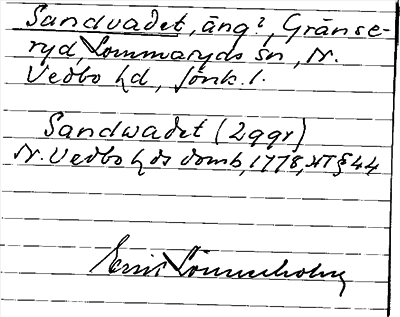 Sandvadet, äng?, Gränse-
ryd, Lommaryds sn, N.
Vedbo hd, Jönk. l.
Sandwadet (2 ggr)
N. Vedbo hds domb, 1778, HT § 44